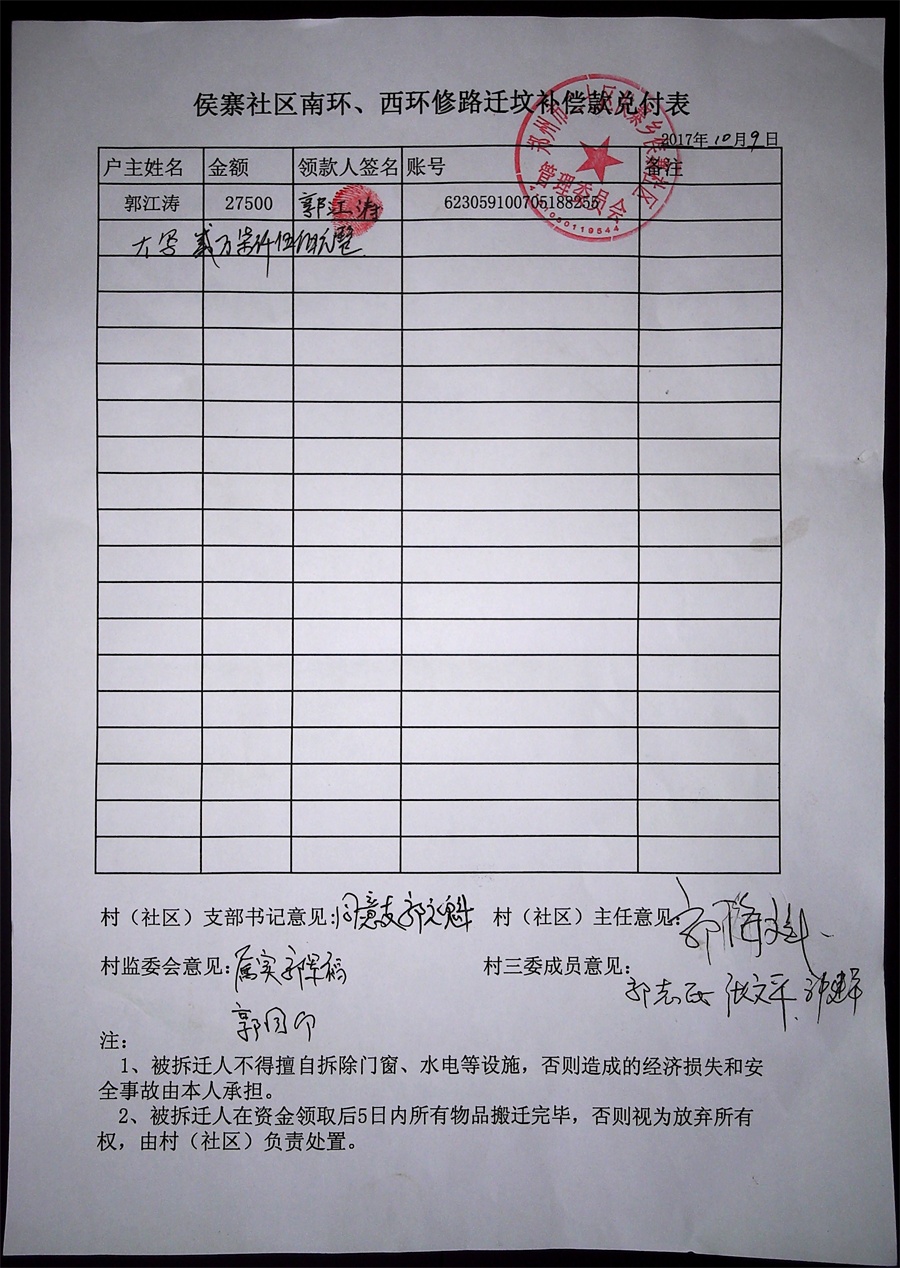 侯寨社区南环、西环修路迁坟补偿款兑付表
2017年10月9日
户主姓名 金额 领款人签名 账号 备注
郭江涛 27500 郭江涛 623059100705188255
大写 贰万柒仟伍佰元整
郑州市 区侯寨乡侯寨社区
管理委员会
村（社区）支部书记意见：同意支 郭 魁 村（社区）主任意见：郭
村监委会意见：属实 郭 福 村三委成员意见：
郭志 张文平
郭国
注：
1、被拆迁人不得擅自拆除门窗、水电等设施，否则造成的经济损失和安
全事故由本人承担。
2、被拆迁人在资金领取后5日内所有物品搬迁完毕，否则视为放弃所有
权，由村（社区）负责处置。